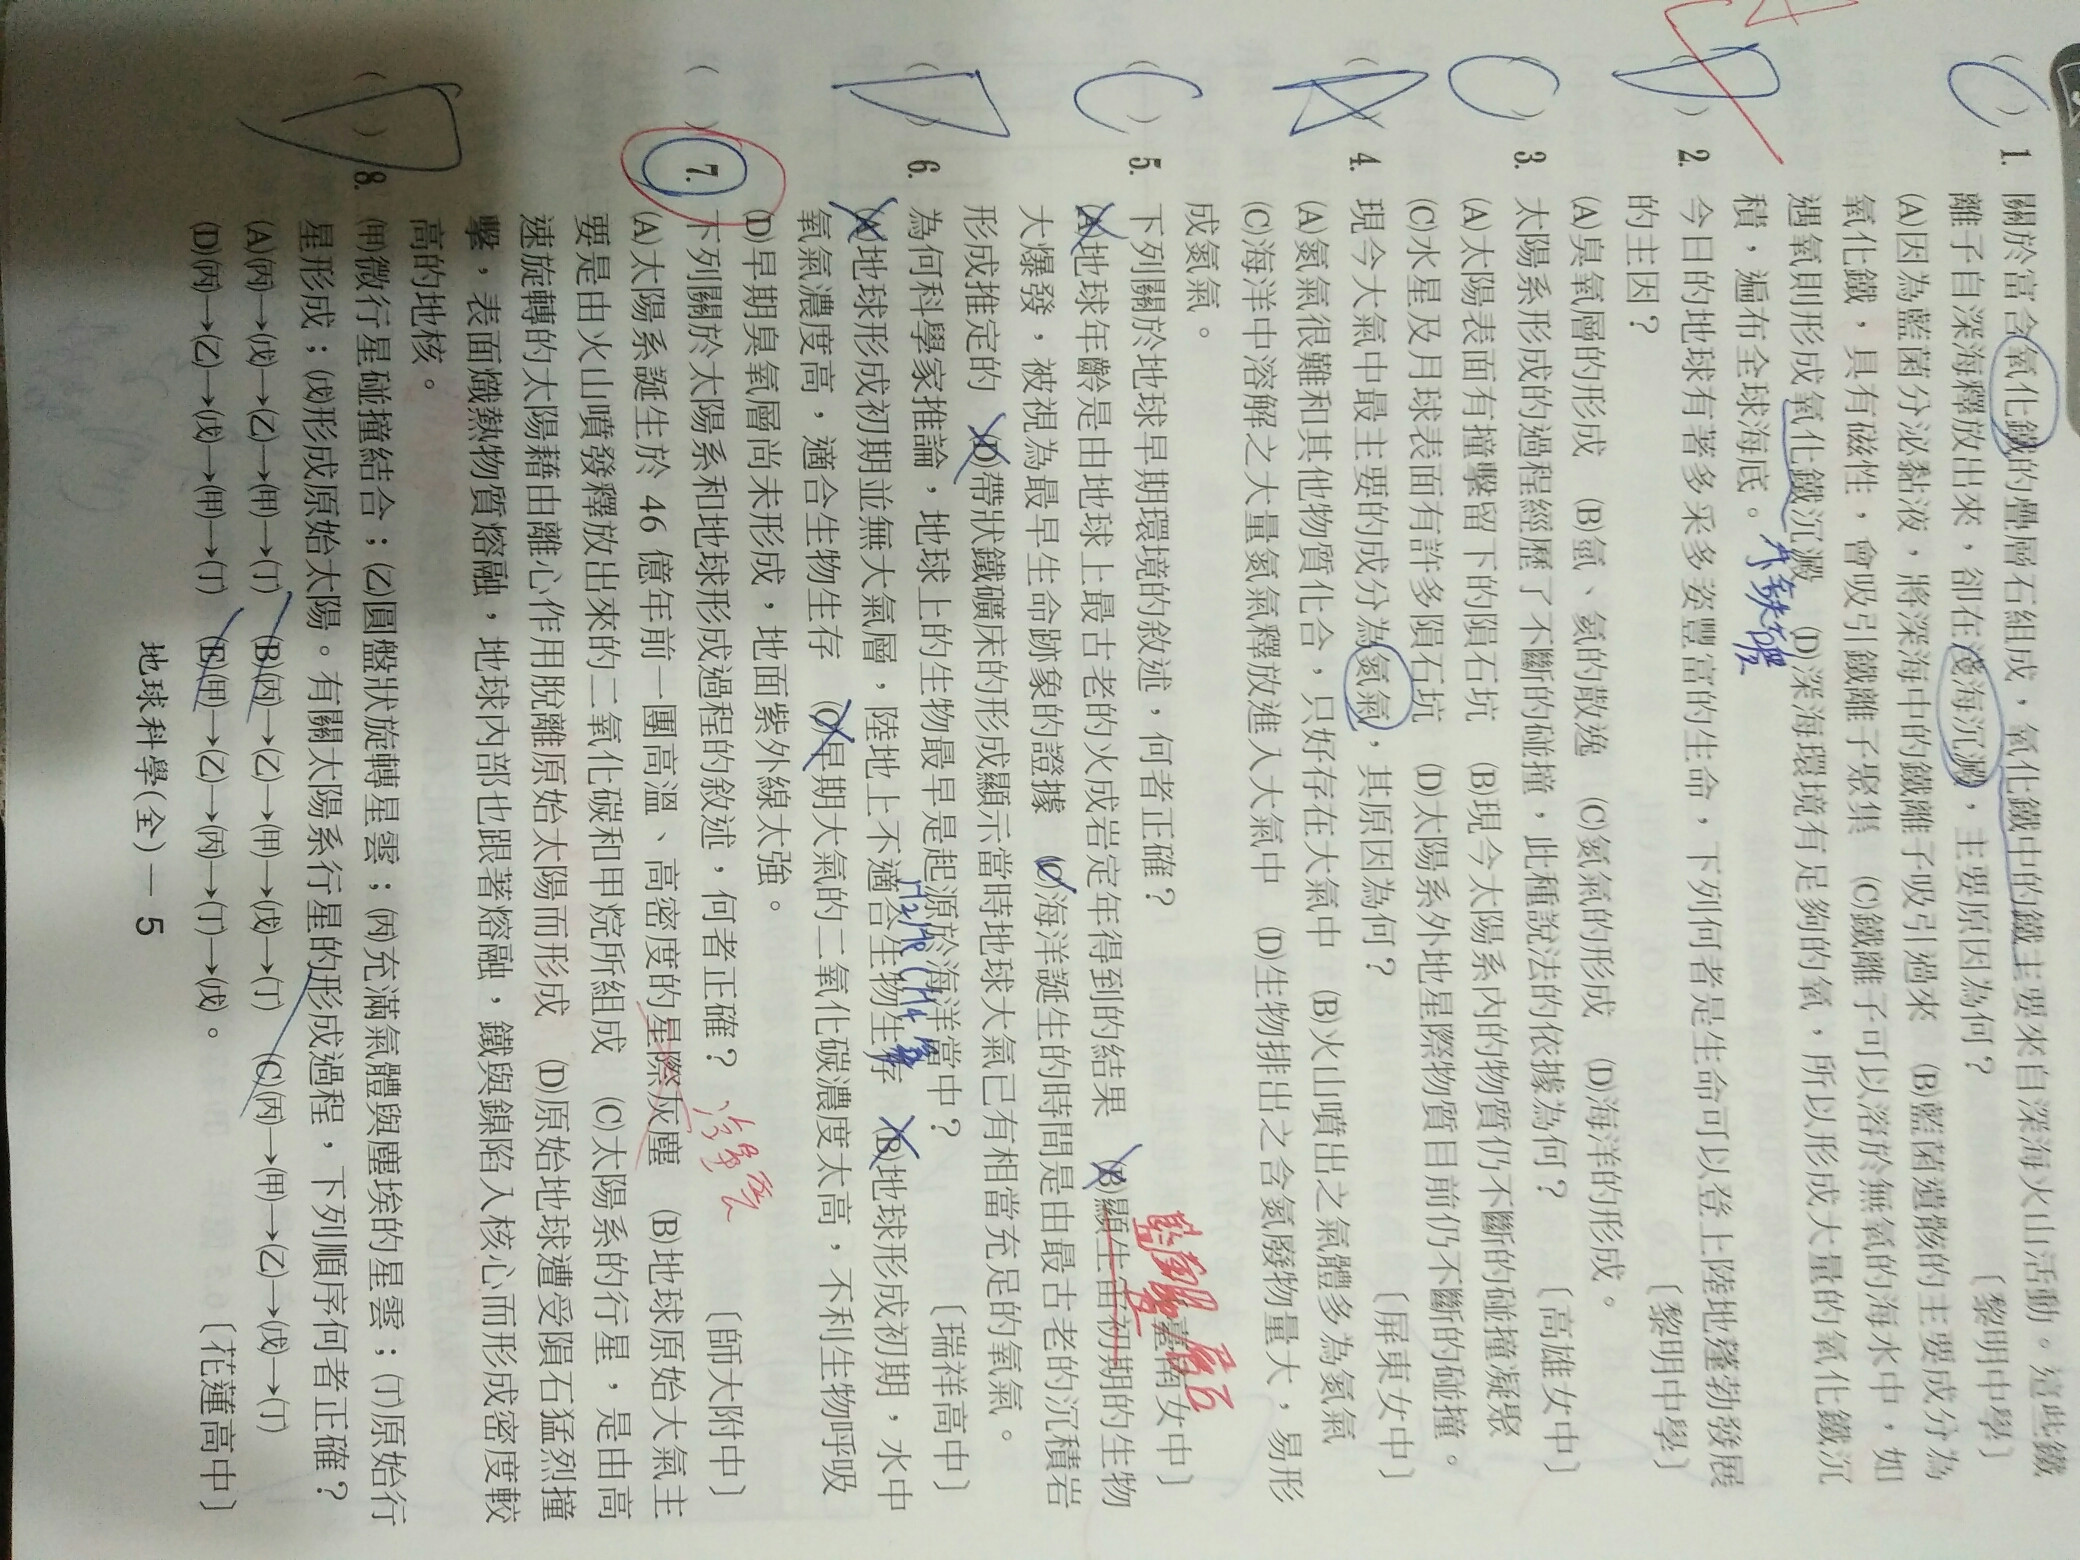 C
( ) 1. 關於富含氧化鐵的疊層石組成，氧化鐵中的鐵主要來自深海火山活動。這些鐵
離子自深海釋放出來，卻在淺海沉澱，主要原因為何？ 〔黎明中學〕
(A)因為藍菌分泌黏液，將深海中的鐵離子吸引過來 (B)藍菌遺骸的主要成分為
氧化鐵，具有磁性，會吸引鐵離子聚集 (C)鐵離子可以溶於無氧的海水中，如
遇氧則形成氧化鐵沉澱 (D)深海環境有足夠的氧，所以形成大量的氧化鐵沉
積，遍布全球海底。
( ) 2. 今日的地球有著多采多姿豐富的生命，下列何者是生命可以登上陸地蓬勃發展
的主因？ 〔黎明中學〕
(A)臭氧層的形成 (B)氫、氦的散逸 (C)氮氣的形成 (D)海洋的形成。
C
( ) 3. 太陽系形成的過程經歷了不斷的碰撞，此種說法的依據為何？ 〔高雄女中〕
(A)太陽表面有撞擊留下的隕石坑 (B)現今太陽系內的物質仍不斷的碰撞凝聚
(C)水星及月球表面有許多隕石坑 (D)太陽系外地星際物質目前仍不斷的碰撞。
A
( ) 4. 現今大氣中最主要的成分為氮氣，其原因為何？ 〔屏東女中〕
(A)氮氣很難和其他物質化合，只好存在大氣中 (B)火山噴出之氣體多為氮氣
(C)海洋中溶解之大量氮氣釋放進入大氣中 (D)生物排出之含氮廢物量大，易形
成氮氣。
C
( ) 5. 下列關於地球早期環境的敘述，何者正確？ 〔臺南女中〕
(A)地球年齡是由地球上最古老的火成岩定年得到的結果 (B)顯生宙初期的生物
大爆發，被視為最早生命跡象的證據 (C)海洋誕生的時間是由最古老的沉積岩
形成推定的 (D)帶狀鐵礦床的形成顯示當時地球大氣已有相當充足的氧氣。
D
( ) 6. 為何科學家推論，地球上的生物最早是起源於海洋當中？ 〔瑞祥高中〕
(A)地球形成初期並無大氣層，陸地上不適合生物生存 (B)地球形成初期，水中
氧氣濃度高，適合生物生存 (C)早期大氣的二氧化碳濃度太高，不利生物呼吸
(D)早期臭氧層尚未形成，地面紫外線太強。
( ) 7. 下列關於太陽系和地球形成過程的敘述，何者正確？ 〔師大附中〕
(A)太陽系誕生於 46 億年前一團高溫、高密度的星際灰塵 (B)地球原始大氣主
要是由火山噴發釋放出來的二氧化碳和甲烷所組成 (C)太陽系的行星，是由高
速旋轉的太陽藉由離心作用脫離原始太陽而形成 (D)原始地球遭受隕石猛烈撞
擊，表面熾熱物質熔融，地球內部也跟著熔融，鐵與鎳陷入核心而形成密度較
高的地核。
D
( ) 8. (甲)微行星碰撞結合；(乙)圓盤狀旋轉星雲；(丙)充滿氣體與塵埃的星雲；(丁)原始行
星形成；(戊)形成原始太陽。有關太陽系行星的形成過程，下列順序何者正確？
(A)(丙)→(戊)→(乙)→(甲)→(丁) (B)(丙)→(乙)→(甲)→(戊)→(丁) (C)(丙)→(甲)→(乙)→(戊)→(丁)
(D)(丙)→(乙)→(戊)→(甲)→(丁) (E)(甲)→(乙)→(丙)→(丁)→(戊)。 〔花蓮高中〕
地球科學(全) — 5